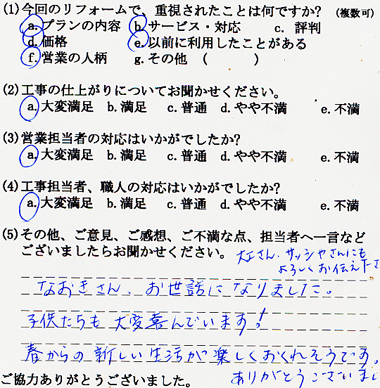 (1)今回のリフォームで、重視されたことは何ですか? (複数可)
a.プランの内容 b.サービス・対応 c. 評判
d.価格 e.以前に利用したことがある
f.営業の人柄 g.その他 ( )
(2)工事の仕上がりについてお聞かせください。
a.大変満足 b.満足 c.普通 d.やや不満 e.不満
(3)営業担当者の対応はいかがでしたか?
a.大変満足 b.満足 c.普通 d.やや不満 e.不満
(4)工事担当者、職人の対応はいかがでしたか?
a.大変満足 b.満足 c.普通 d.やや不満 e.不満
(5)その他、ご意見、ご感想、ご不満な点、担当者へ一言など
ございましたらお聞かせください。
さん、サッシヤさんにも
よろしくお伝え下さ
なおきさん、お世話になりました。
子供たちも大変喜んでいます!
春からの新しい生活が楽しくおくれそうです。
ありがとうございまし
ご協力ありがとうございました。